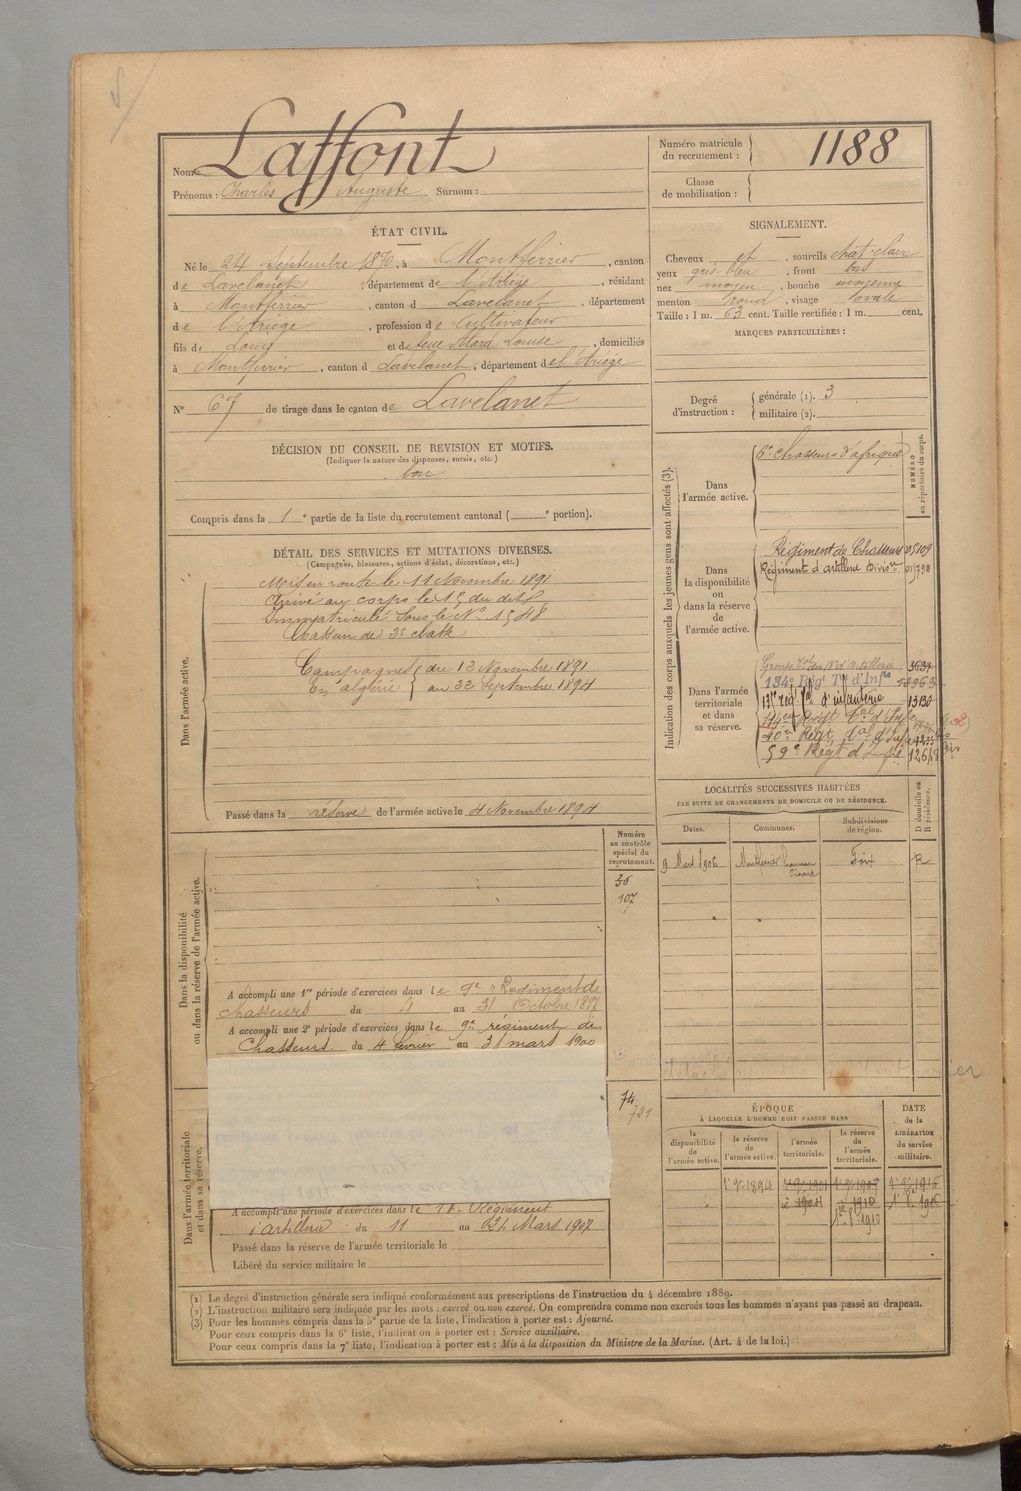 Nom : Laffont
Prénoms : Charles Auguste Surnom :
Numéro matricule
du recrutement : 1188
Classe
de mobilisation :
ÉTAT CIVIL.
Né le 24 Septembre 1870, à Montferrier, canton
de Lavelanet, département de l'Ariège, résidant
à Montferrier, canton d Lavelanet, département
de l'Ariège, profession de Cultivateur
fils de Louis et de feue Louise, domiciliés
à Montferrier, canton d Lavelanet, département de l'Ariège
N° 67 de tirage dans le canton de Lavelanet
SIGNALEMENT.
Cheveux et, sourcils chat-clair
yeux gris-bleu, front bas
nez moyen, bouche moyenne
menton rond, visage ovale
Taille : 1 m. 63 cent. Taille rectifiée : 1 m. cent.
MARQUES PARTICULIÈRES :
Degré
d'instruction :
générale (1). 3
militaire (2).
DÉCISION DU CONSEIL DE REVISION ET MOTIFS.
(Indiquer la nature des dispenses, sursis, etc.)
bon
Compris dans la 1e partie de la liste du recrutement cantonal ( e portion).
DÉTAIL DES SERVICES ET MUTATIONS DIVERSES.
(Campagnes, blessures, actions d'éclat, décorations, etc.)
Dans l'armée active.
Mis en route le 11 Novembre 1891
Arrivé au corps le 15 du dit
Immatriculé sous le N° 1548
Chasseur de 2e classe
Campagnes du 13 Novembre 1891
En algérie au 22 Septembre 1894
Passé dans la réserve de l'armée active le 4 Novembre 1894
Indication des corps auxquels les jeunes gens sont affectés (3).
NUMÉRO
au répertoire du corps.
Dans
l'armée active.
6e Chasseurs d'afrique
Dans
la disponibilité
ou
dans la réserve
de
l'armée active.
Régiment de Chasseurs 05109
Régiment d'artillerie Divisre 01798
Dans l'armée
territoriale
et dans
sa réserve.
Groupe Tal du 18e d'Artillerie 3637
134e Régt Tal d'Infie
135e régt Tal d'infanterie 13130
144e Régt Tal d'Infie
Régt Tal d'Inf
59e Régt d'Infie 12618 bis
LOCALITÉS SUCCESSIVES HABITÉES
PAR SUITE DE CHANGEMENTS DE DOMICILE OU DE RÉSIDENCE.
Dates. Communes. Subdivisions
de région. D domicile ou
R résidence.
9 Mars 1906 Montferrier Foix R
Numéro
au contrôle
spécial du
recrutement.
36
107
Dans la disponibilité
ou dans la réserve de l'armée active.
A accompli une 1re période d'exercices dans le 9e Régiment de
chasseurs du 4 au 31 Octobre 1897
A accompli une 2e période d'exercices dans le 9e régiment de
Chasseurs du 4 février au 31 mars 1900
74
721
Dans l'armée territoriale
et dans sa réserve.
A accompli une période d'exercices dans le 18e Régiment
d'artillerie du 11 au 24 Mars 1907
Passé dans la réserve de l'armée territoriale le
Libéré du service militaire le
ÉPOQUE
À LAQUELLE L'HOMME DOIT PASSER DANS
DATE
de la
LIBÉRATION
du service
militaire.
la
disponibilité
de
l'armée active.
la réserve
de
l'armée active.
l'armée
territoriale.
la réserve
de
l'armée
territoriale.
1er 9bre 1894 1er 9bre 1904 1er 9bre 1907 1er 9bre 1916
1910
(1) Le degré d'instruction générale sera indiqué conformément aux prescriptions de l'instruction du 4 décembre 1889.
(2) L'instruction militaire sera indiquée par les mots : exercé ou non exercé. On comprendra comme non exercés tous les hommes n'ayant pas passé au drapeau.
(3) Pour les hommes compris dans la 5e partie de la liste, l'indication à porter est : Ajourné.
Pour ceux compris dans la 6e liste, l'indication à porter est : Service auxiliaire.
Pour ceux compris dans la 7e liste, l'indication à porter est : Mis à la disposition du Ministre de la Marine. (Art. 4 de la loi.)